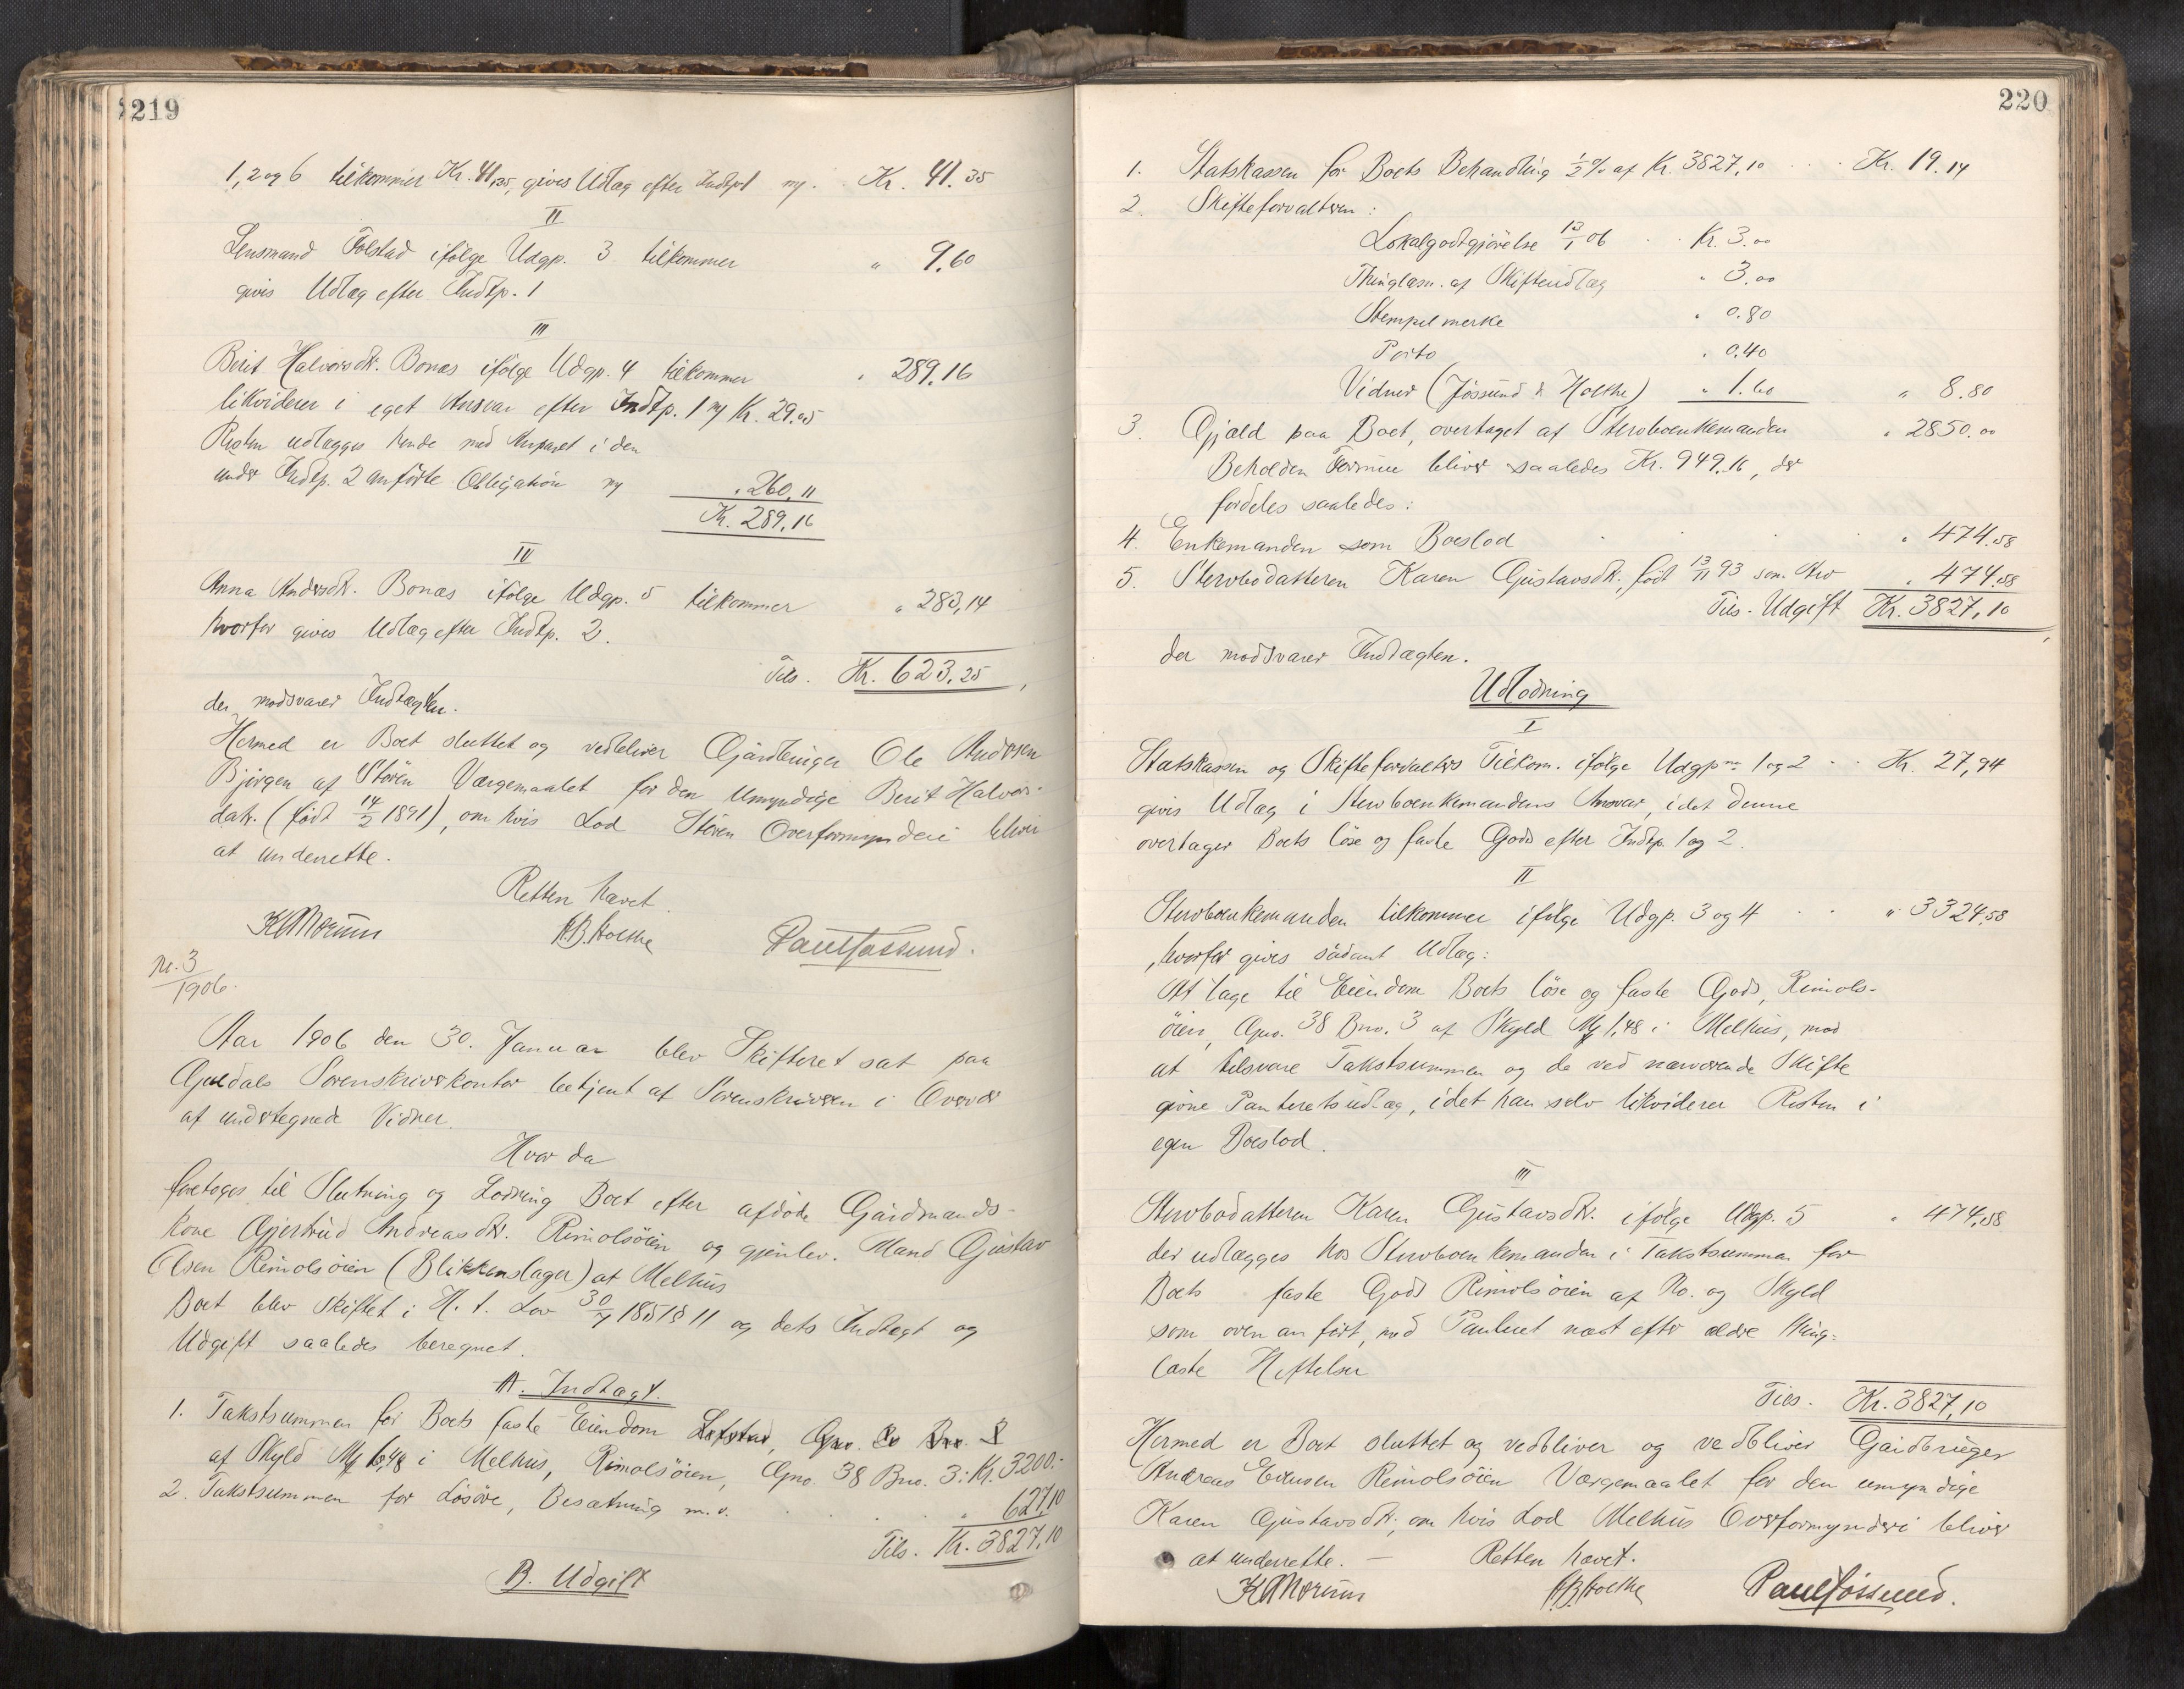 219
1, 2 og 6 tilkommer Kr. 41,35, gives Udlæg efter Indtpt 1 my. Kr. 41.35
II
Lensmand Folstad ifölge Udgp. 3 tilkommer " 9,60
gives Udlæg efter Indtp. 1
III
Berit Halvorsdtr. Bonæs ifölge Udgp. 4 tilkommer " 289.16
likviderer i eget Ansvar efter Indtp. 1 my Kr. 29.05
Resten udlægges hende med Anparet i den
under Indtp. 2 anförte Obligation my " 260,11
Kr. 289,16
IV
Anna Andersdtr. Bonæs ifölge Udgp. 5 tilkommer " 283,14
hvorfor gives Udlæg efter Indtp. 2.
Tils. Kr. 623,25,
der modsvarer Indtægten.
Hermed er Boet sluttet og vedbliver Gårdbruger Ole Andersen
Bjørgen af Stören Værgemaalet for den Umyndige Berit Halvors-
datr. (født 14/2 1891), om hvis Lod Stören Overformynderi bliver
at underrette.
Retten hævet.
K Morum P.B. Holthe Paul Jøssund.
Nr. 3
1906.
Aar 1906 den 30. Januar blev Skifteret sat paa
Guldals Sorenskriverkontor betjent af Sorenskriveren i Overvær
af undertegnede Vidner.
Hvor da
foretoges til Slutning og Lodning Boet efter afdöde Gårdmands-
kone Gjertrud Andreasdtr. Rimolsöien og gjenlev. Mand Gustav
Olsen Rimolsöien (Blikkenslager) af Melhus
Boet blev skiftet i H. t. Lov 30/7 1851 § 11 og dets Indtægt og
Udgift saaledes beregnet.
A. Indtægt.
1. Takstsummen for Boets faste Eiendom Gno. Bno.
af Skyld My 1,48 i Melhus, Rimolsöien, Gno. 38 Bno. 3: Kr. 3200.-
2. Takstsummen for Lösöre, Besætning m.v. " 627,10
Tils. Kr. 3827,10
B. Udgift
220
1. Statskassen for Boets Behandling ½ % af Kr. 3827,10 Kr. 19.14
2. Skifteforvalteren:
Lokalgodtgjörelse 12/1 06 Kr. 3.00
Thinglæsn. af Skifteudlæg " 3.00
Stempelmerke " 0.80
Porto " 0.40
Vidner (Jössund & Holthe) " 1.60 " 8.80
3. Gjæld paa Boet, overtaget af Stervboenkemanden " 2850.00
Beholden Formue bliver saaledes Kr. 949.16, der
fordeles saaledes:
4. Enkemanden som Boeslod " 474.58
5. Stervbodatteren Karen Gustavsdtr., født 13/11 93 som Arv " 474.58
Tils. Udgift Kr. 3827,10,
der modsvarer Indtægten.
Udlodning
I
Statskassen og Skifteforvalters Tilkom. ifölge Udgp nr 1 og 2 Kr. 27,94
gives Udlæg i Stervboenkemandens Ansvar, idet denne
overtager Boets löse og faste Gods efter Indtp. 1 og 2.
II
Stervboenkemanden tilkommer ifölge Udgp. 3 og 4 " 3324,58
, hvorfor gives sådant Udlæg:
At tage til Eiendom Boets löse og faste Gods, Rimols-
öien, Gno. 38 Bno. 3 af Skyld My 1,48 i Melhus, mod
at tilsvare Takstsummen og de ved nærværende Skifte
givne Panteretsudlæg, idet han selv likviderer Resten i
egen Boeslod.
III
Stervbodatteren Karen Gustavsdtr. ifölge Udgp. 5 " 474,58
der udlægges hos Stervboenkemanden i Takstsummen for
Boets faste Gods Rimolsöien af No. og Skyld
som oven anfört, med Panteret næst efter ældre thing-
læste Heftelser
Tils. Kr. 3827,10
Hermed er Boet sluttet og vedbliver og vedbliver Gårdbruger
Andreas Rimolsöien Værgemaalet for den umyndige
Karen Gustavsdtr., om hvis Lod Melhus Overformynderi bliver
at underrette. — Retten hævet.
K Morum P.B. Holthe Paul Jøssund.